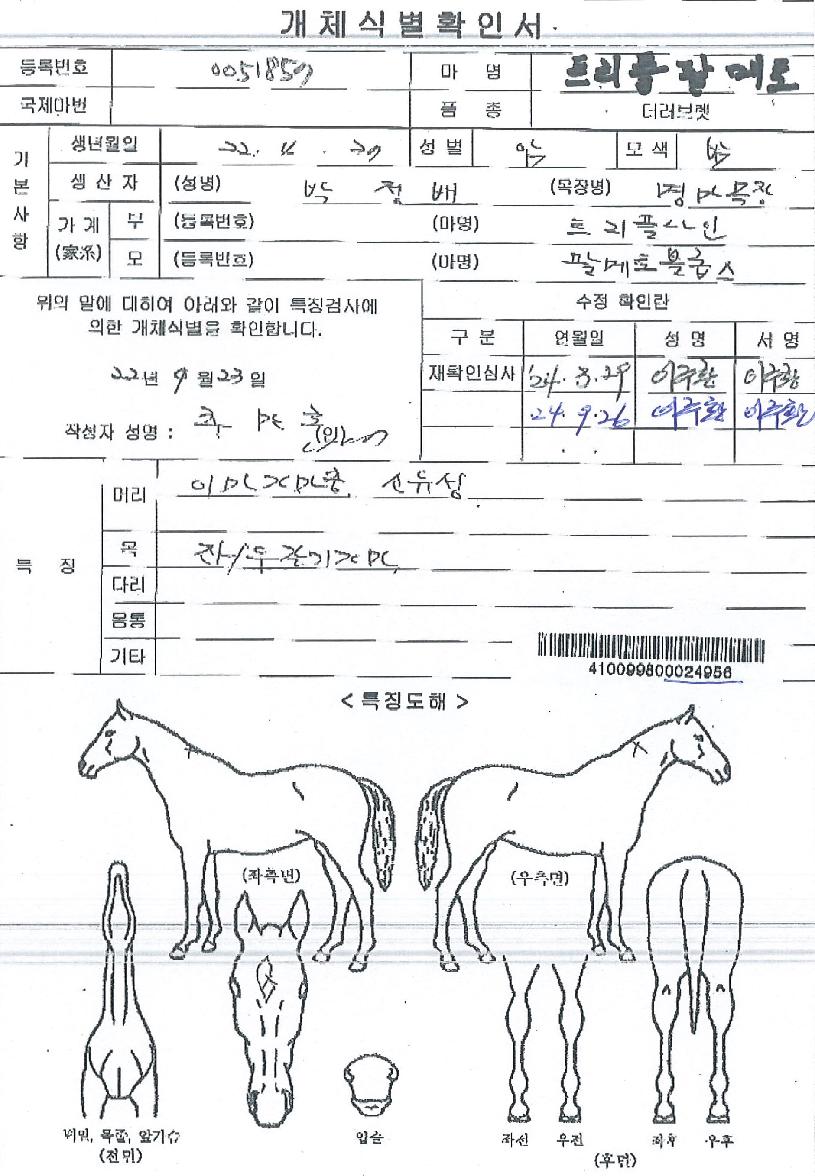 개체식별확인서
등록번호 0051859 마 명 트리플팔메토
국제마번 품 종 더러브렛
기본사항
생년월일 22. 4. 30 성별 암 모색 밤
생산자 (성명) 박 정 배 (목장명) 명마목장
가계 (家系) 부 (등록번호) (마명) 트리플사인
모 (등록번호) (마명) 팔메토블룸스
위의 말에 대하여 아래와 같이 특징검사에
의한 개체식별을 확인합니다.
22년 9월 23일
작성자 성명 : (인)
수정 확인란
구 분 연월일 성 명 서 명
재확인심사 24. 3. 29 이주환 이주환
24. 9. 26 이주환 이주환
특 징
머리
목
다리
몸통
기타
410099800024956
< 특징도해 >
(좌측면) (우측면)
(전면)
입술
좌전 우전 좌후 우후
(후면)